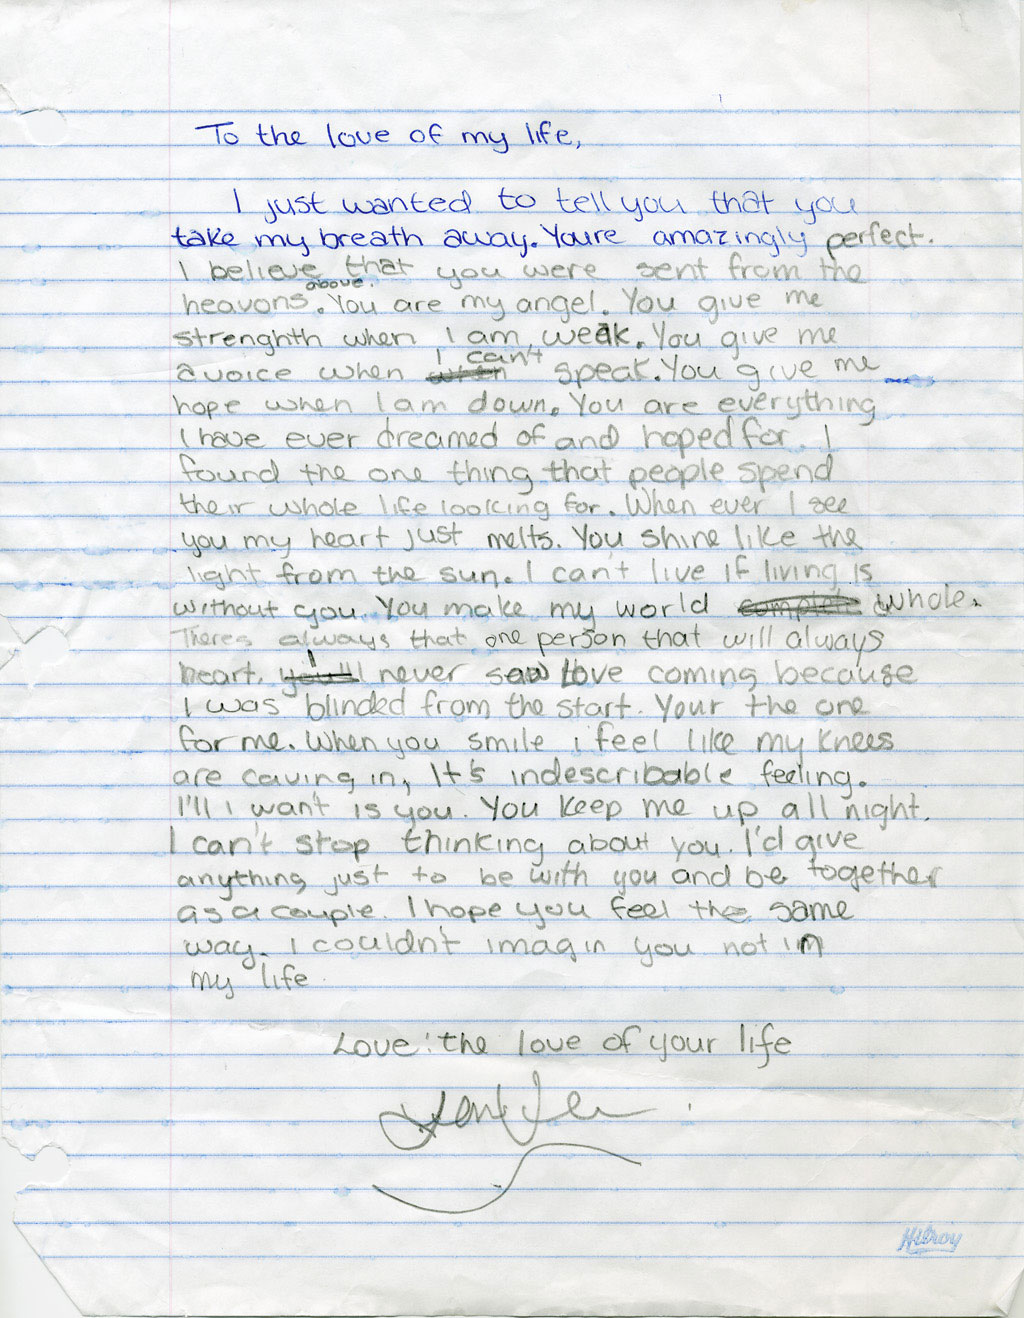 To the love of my life,
I just wanted to tell you that you
take my breath away. You're amazingly perfect.
I believe that you were sent from the
heavons above. You are my angel. You give me
strenghth when I am weak. You give me
a voice when I can't speak. You give me
hope when I am down. You are everything
I have ever dreamed of and hoped for. I
found the one thing that people spend
their whole life looking for. When ever I see
you my heart just melts. You shine like the
light from the sun. I can't live if living is
without you. You make my world whole.
Theres always that one person that will always
heart. I never saw love coming because
I was blinded from the start. Your the one
for me. When you smile i feel like my knees
are caving in, It's indescribable feeling.
I'll i want is you. You keep me up all night.
I can't stop thinking about you. I'd give
anything just to be with you and be together
as a couple. I hope you feel the same
way. I couldn't imagin you not in
my life
Love: the love of your life
Hilroy